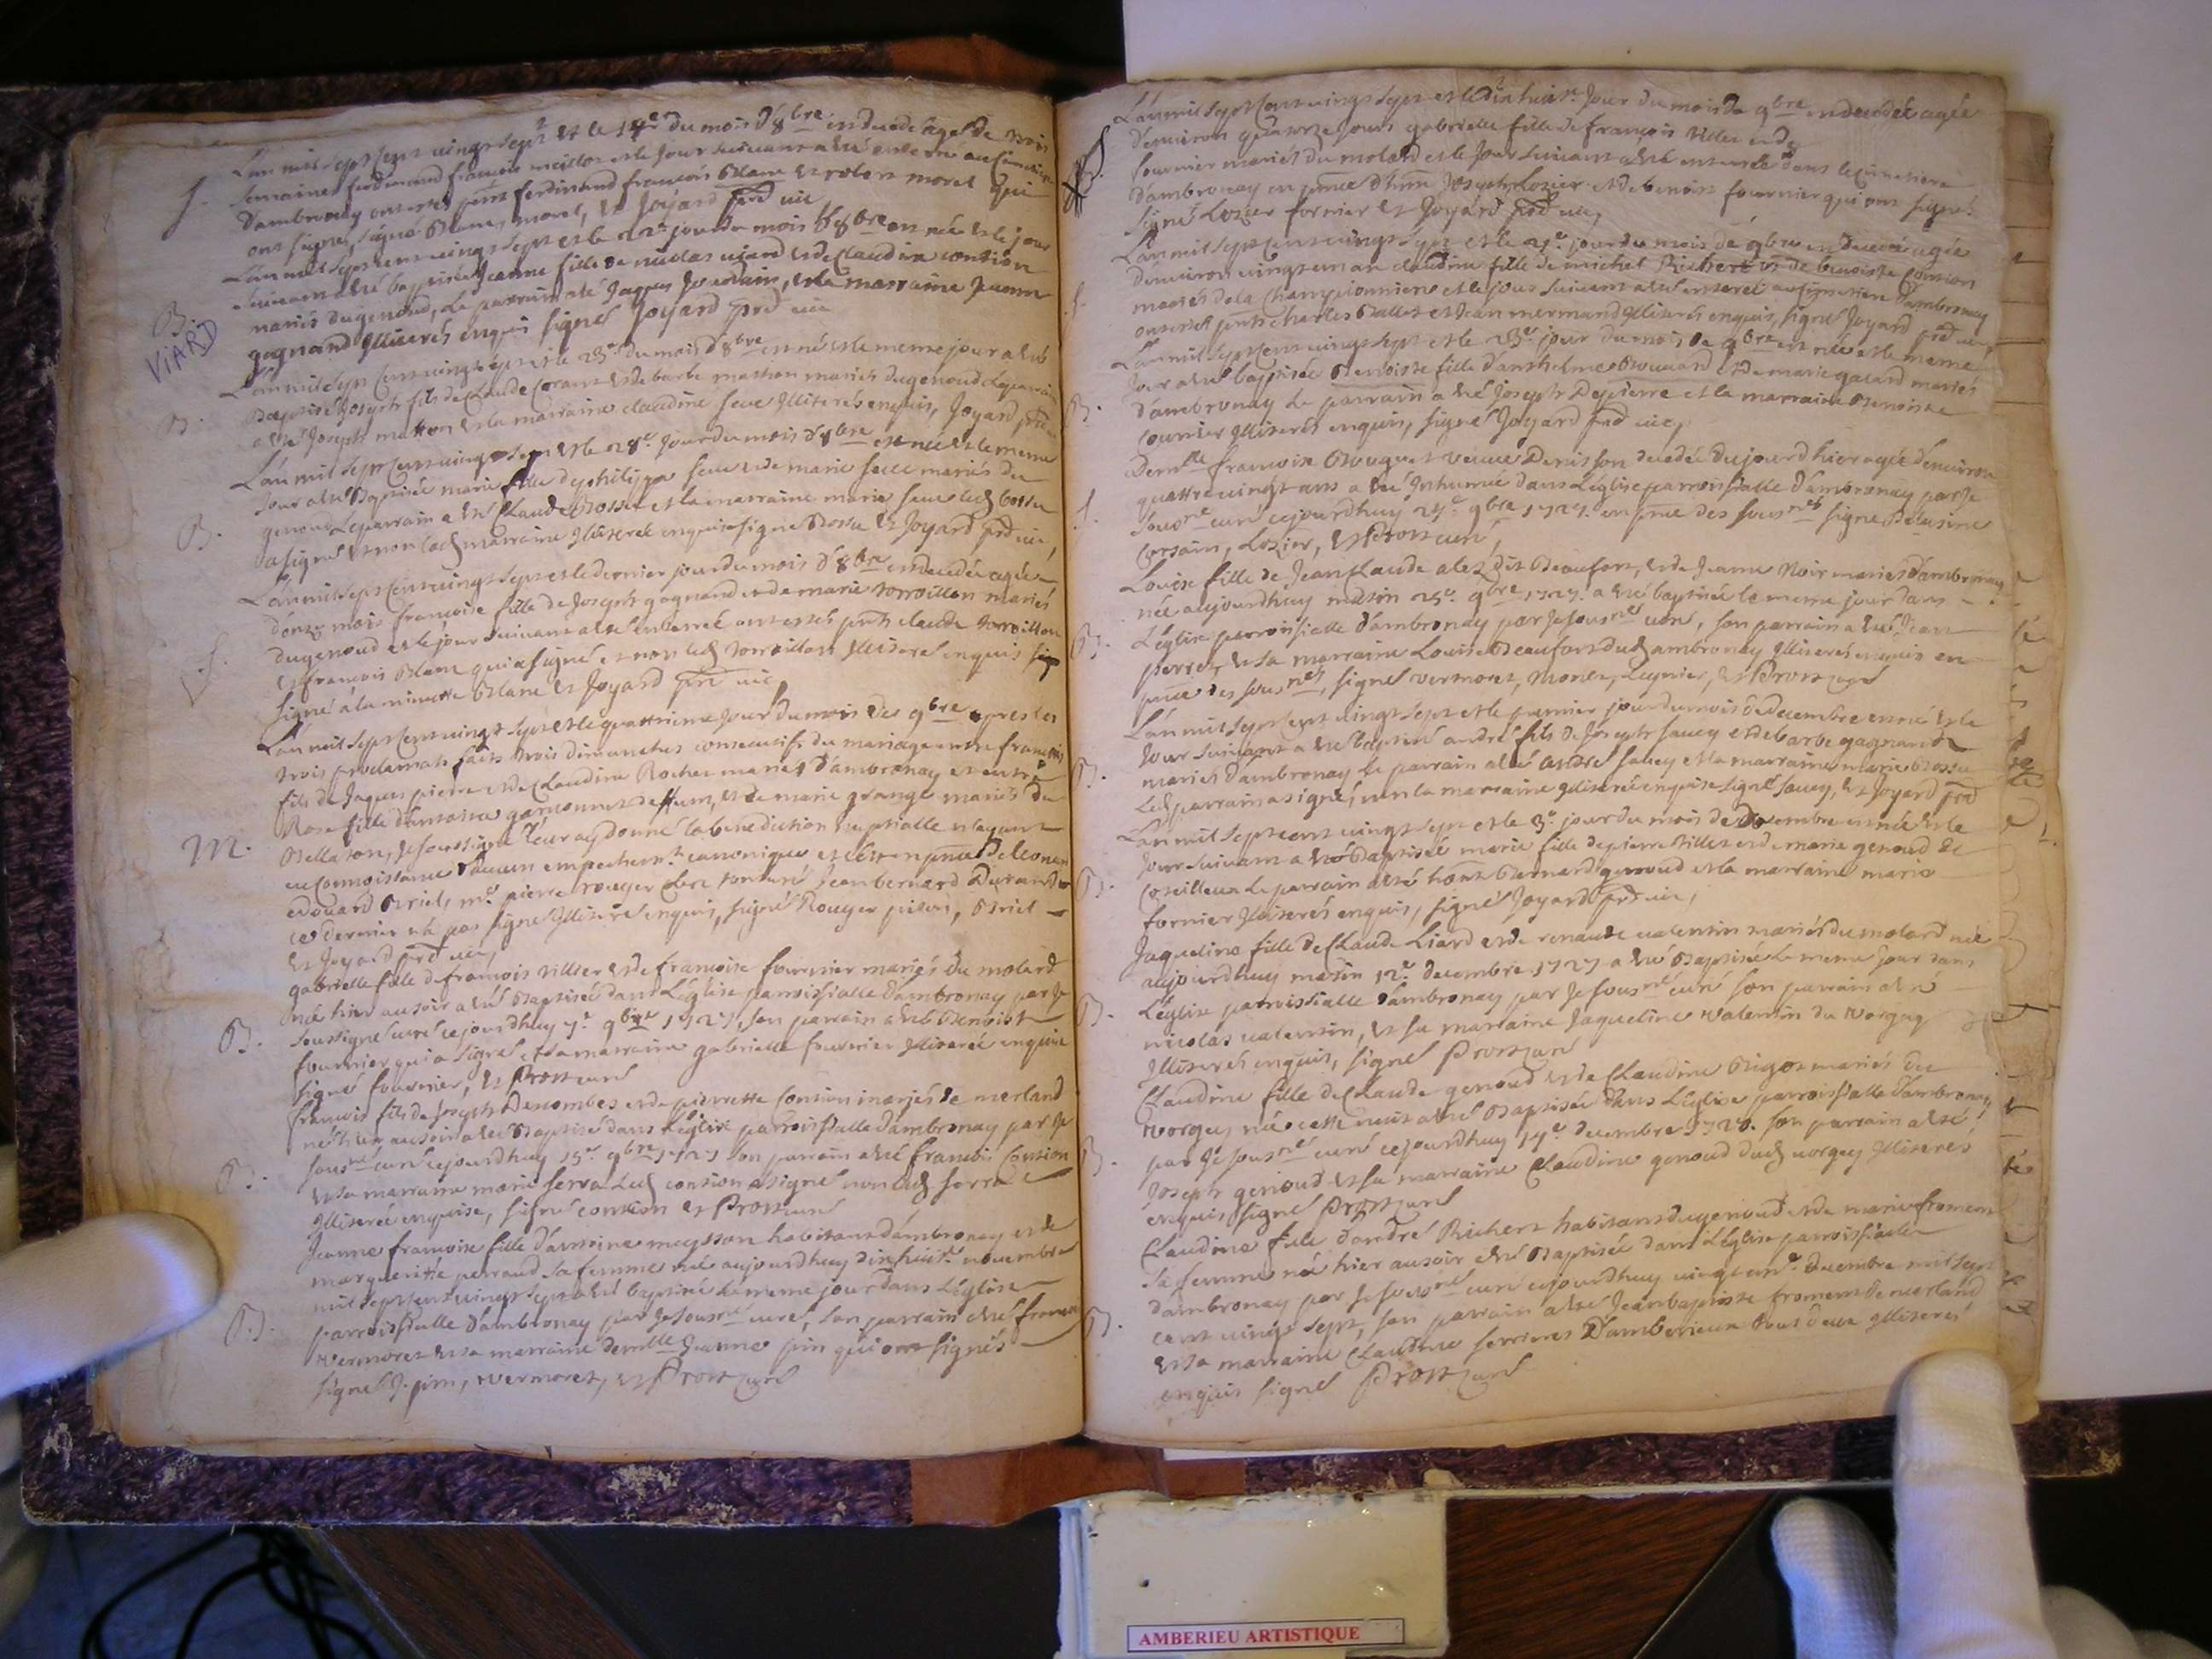 L'an mil sept cent vingt sept et le 14e du mois d'8bre est decedé agé de trois
semaines ferdinand françois meillor et le jour suivant a été enterré au
d'ambronay ont estés pnts ferdinand françois Blanc et robert morel qui
ont signes, signé Blanc, morel, et Joyard prd vic
L'an mil sept cent vingt sept et le 22e jour du mois d'8bre est née et le jour
suivant a été baptisée Jeanne fille de nicolas viard et de Claudine contion
mariés du genoud, le parrain a été Jaques et la marraine Jeanne
gagnand illiterés enquis signé Joyard prd vic
B.
VIARD
L'an mil sept cent vingt sept et le 23e du mois d'8bre est né et le meme jour a été
Baptisé Joseph fils de Claude et de barbe matton mariés du genoud le parrain
a été Joseph matton et la marraine claudine seve illiterés enquis, Joyard prd
B.
L'an mil sept cent vingt sept et le 28e jour du mois d'8bre est née et le meme
jour a été Baptisée marie fille de philippe seve et de marie seve mariés du
genoud Le parrain a été Claude Bossu et la marraine marie seve led bossu
a signé et non lad marraine illiterée enquise signé Bossu et Joyard prd vic,
B.
L'an mil sept cent vingt sept et le dernier jour du mois d'8bre est decedée agée
d'onze mois françoise fille de Joseph gagnand et de marie torroillon mariés
du genoud et le jour suivant a été enterrée ont estés pnts claude torroillon
et françois Blanc qui a signé et non led torroillon illiteré enquis
signé à la minutte Blanc et Joyard prd vic
L'an mil sept cent vingt sept et le quattrieme jour du mois de 9bre apres les
trois proclamats faits trois dimanches consecutifs du mariage entre françois
fils de Jaques pierre et de Claudine Rocher mariés d'ambronay et entre
Rose fille d'antoine et de marie grange mariés de
Bellaton, je soussigné leur ay donné la benediction nuptialle n'ayant
eu connoissance d'aucun empechemt canonique et c'est en pnce de
edouard Briel, mre pierre rouger clerc tonsuré Jean bernard Durand
ce dernier n'a pas signé illiteré enquis, signé Rouger, Briel
et Joyard prd vic,
M.
gabrielle fille de françois villier et de françoise fournier mariés du molard
née hier au soir a été Baptisée dans L'église parroissialle d'ambronay par je
soussigné curé cejourdhuy 7e 9bre 1727, son parrain a été Benoist
fournier qui a signé et sa marraine gabrielle fournier illiterée enquise
signé fournier, et Prost curé
B.
françois fils de Joseph Descombes et de pierrette Contion mariés de merland
né hier au soir a été Baptisé dans L'église parroissialle d'ambronay par je
sousné curé cejourdhuy 15e 9bre 1727 son parrain a été françois Contion
et sa marraine marie serra Led contion a signé non lad serra
illiterée enquise, signé contion et Prost curé
B.
Jeanne françoise fille d'antoine meysson habitant d'ambronay et de
margueritte perraud sa femme née aujourdhuy dix huite novembre
mil sept cent vingt sept a été baptisée le meme jour dans L'église
parroissialle d'ambronay par je sousné curé, son parrain a été françois
vermoret et sa marraine demlle Jeanne pin qui ont signés
signé J. pin, vermoret, et Prost curé
B.
L'an mil sept cent vingt sept et le dix huite Jour du mois de 9bre est decedée agée
d'environ quatorze jours gabrielle fille de françois villier et de
fournier mariés du molard et le jour suivant a été enterrée dans le cimetiere
d'ambronay en pnce d'hnn Joseph Lozier et de benoist fournier qui ont signé
signé Lozier fornier et Joyard prd vic,
L'an mil sept cent vingt sept et le 21e jour du mois de 9bre est decedée agée
d'environ vingt un an claudine fille de michel Richert et de benoiste Contion
mariés de la Championniere et le jour suivant a été enterrée au cimetiere d'ambronay
ont estés pnts charles Ballet et Jean mermand illiterés enquis, signé Joyard prd vic,
L'an mil sept cent vingt sept et le 23e jour du mois de 9bre est née et le meme
jour a été baptisée Benoiste fille d'anthelme Brouard et de marie galand mariés
d'ambronay Le parrain a été Joseph Depierre et la marraine Benoiste
cournier illiterés enquis, signé Joyard prd vic,
B.
Demlle françoise Bouquet veuve Denisson decedée du jourd hier agée d'environ
quattre vingt ans a été Inhumée dans L'église parroissialle d'ambronay par je
sousné curé cejourdhuy 24e 9bre 1727 en pnce des sousnés signé
Corsain, Lozier, et Prost curé,
Louise fille de Jean Claude alez dit Beaufort, et de Jeanne Noir mariés d'ambronay
née aujourdhuy matin 25e 9bre 1727 a été baptisée le meme jour dans
L'église parroissialle d'ambronay par je sousné curé, son parrain a été Jean
perret, et sa marraine Louise Beaufort dud ambronay illiterés enquis en
pnce des sousnés, signé vermoret, monet, Leynier, et Prost curé
B.
L'an mil sept cent vingt sept et le premier jour du mois de decembre est né et le
Jour suivant a été baptisé andré fils de Joseph saucy et de barbe gagnand
mariés d'ambronay Le parrain a été andré saucy et la marraine marie Bossu
Led parrain a signé, non la marraine illiterée enquise signé saucy, et Joyard prd
B.
L'an mil sept cent vingt sept et le 3e jour du mois de Decembre est née et le
jour suivant a été Baptisée marie fille de pierre Billet et de marie genoud de
Coseilleux Le parrain a été hont Bernard genoud et la marraine marie
fornier illiterés enquis, signé Joyard prd vic,
B.
Jaqueline fille de Claude Liard et de renaude valentin mariés du molard née
aujourdhuy matin 12e decembre 1727 a été Baptisée Le meme jour dans
L'église parroissialle d'ambronay par je sousné curé son parrain a été
nicolas valentin, et sa marraine Jaqueline valentin du vorgey
illiterés enquis, signé Prost curé
B.
Claudine fille de Claude genoud et de Claudine Bigot mariés du
vorgey née cette nuit a été Baptisée dans L'église parroissialle d'ambronay
par je sousné curé cejourdhuy 14e decembre 1727. son parrain a été
Joseph genoud et sa marraine Claudine genoud dud vorgey illiterés
enquis signé Prost curé
B.
Claudine fille d'andré Richert habitant du genoud et de marie froment
sa femme née hier au soir a été Baptisée dans L'église parroissialle
d'ambronay par je sousné curé cejourdhuy vingt une decembre mil sept
cent vingt sept, son parrain a été Jean baptiste froment de merland
et sa marraine Claudine ferrieres D'amberieux tous deux illiterés
enquis signé Prost curé
B.
AMBERIEU ARTISTIQUE